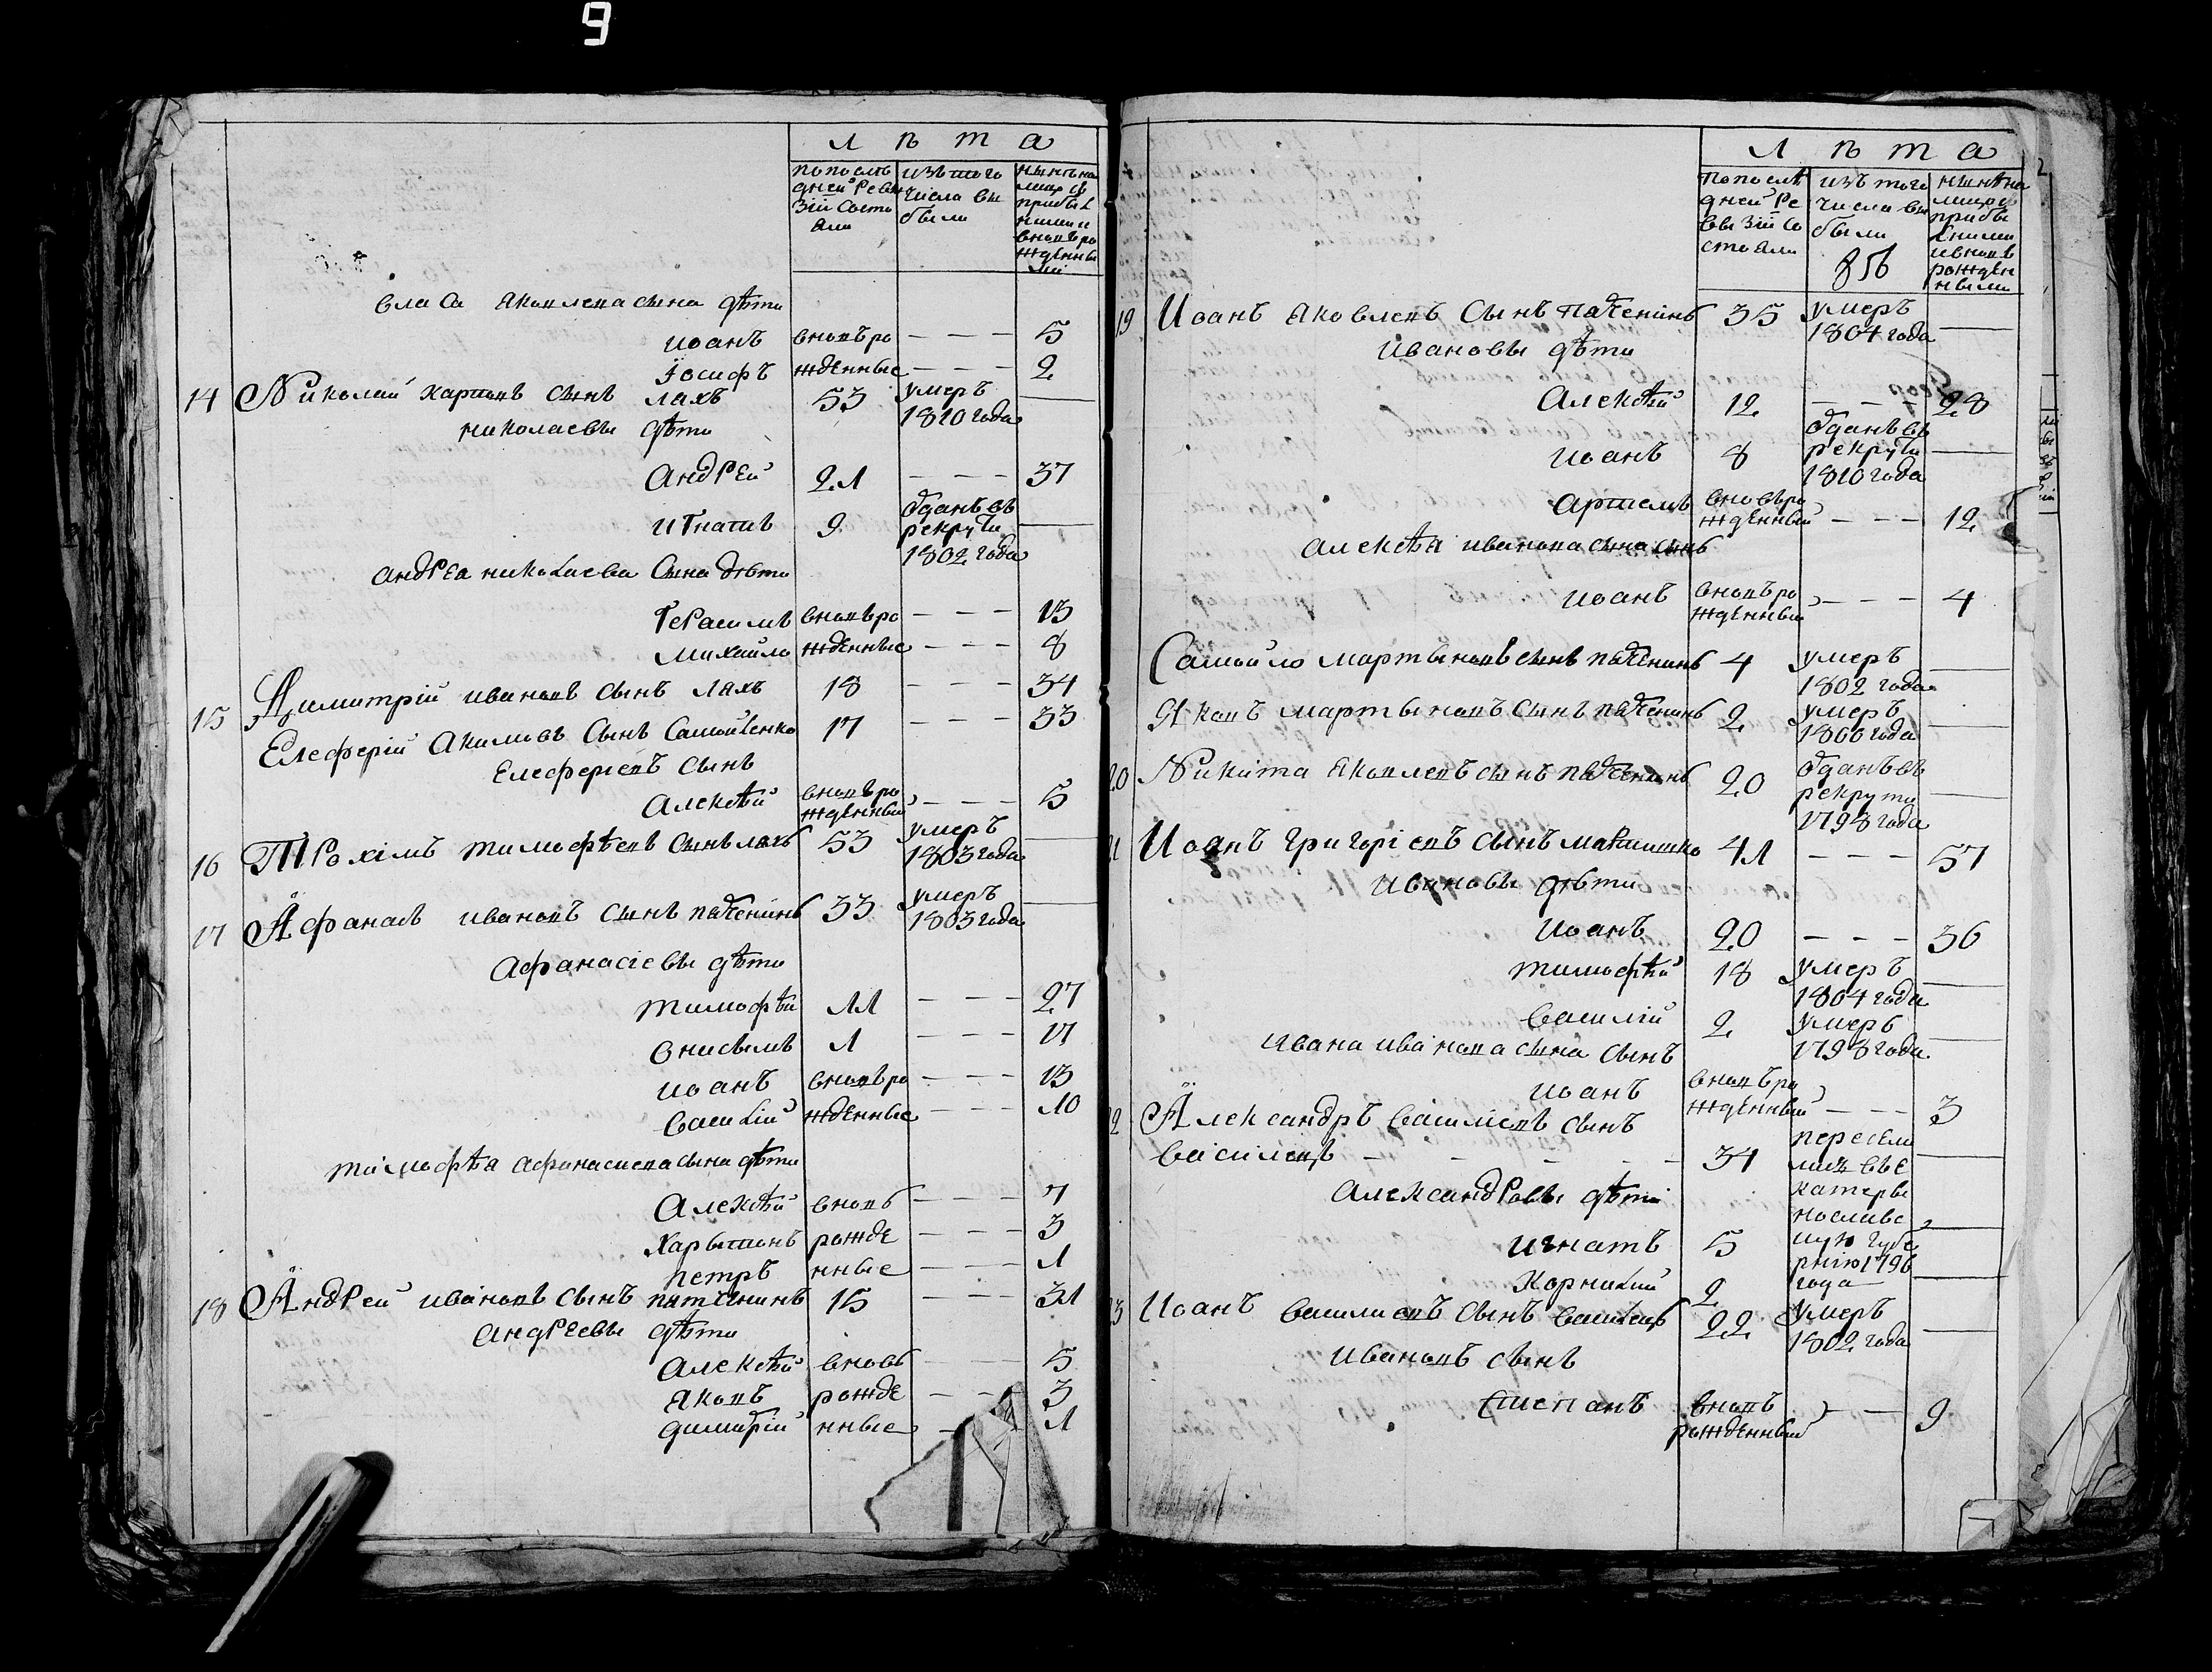 9
Лѣта
по послѣ
дней Реви
зіи состо
яли
изъ того
числа вы
были
нынѣ на
лицо съ
прибыл
ними и
вновь ро
жденны
ми
Власа Яковлева сына дѣти
Иоанъ вновь ро - - - 5
Іосифъ жденные - - - 2
14 Николай Харитоновъ сынъ Ляхъ 53 умеръ
1810 года
Николаевы дѣти
Андрей 21 - - - 37
Игнатъ 9 Отданъ въ
рекруты
1802 года
Андреа Николаева Сына дѣти
Герасимъ вновь ро - - - 13
Михайло жденные - - - 8
15 Димитрій Ивановъ сынъ Ляхъ 18 - - - 34
Елеферій Акимовъ Сынъ Самойленко 17 - - - 33
Елеферіевъ сынъ
Алексѣй вновь ро
жденный - - - 5
16 Трохімъ Тимофѣевъ Сынъ Ляхъ 53 умеръ
1803 года
17 Афанасъ Ивановъ Сынъ 33 умеръ
1803 года
Афанасіевы дѣти
Тимофѣй 11 - - - 27
Онисимъ 1 - - - 17
Иоанъ вновь ро - - - 13
Василій жденные - - - 10
Тимофѣя Афанасиева сына дѣти
Алексѣй вновь - - - 7
Харытонъ рожде - - - 3
Петръ нные - - - 1
18 Андрей Ивановъ Сынъ 15 - - - 31
Андреевы дѣти
Алексѣй вновь - - - 5
Яковъ рожде - - - 3
Димитрій нные - - 1
Лѣта
По послѣ
дней Ре
визіи со
стояли
изъ того
числа вы
были
856
нынѣ на
лицо съ
прибы
лними
и вновь
рожден
ными
19 Иоанъ Яковлевъ Сынъ 35 умеръ
1804 года
Ивановы дѣти
Алексѣй 12 - - - 28
Иоанъ 8 Отданъ въ
рекруты
1810 года
Артемъ вновь ро
жденный - - - 12
Алексѣя Иванова сына сынъ
Иоанъ вновь ро
жденный - - - 4
Самойло Мартыновъ сынъ 4 умеръ
1802 года
Яковъ Мартыновъ Сынъ 2 умеръ
1800 года
20 Никита Яковлевъ сынъ 20 Отданъ въ
рекруты
1798 года
21 Иоанъ Григоріевъ сынъ 41 - - - 57
Ивановы дѣти
Иоанъ 20 - - - 36
Тимофѣй 18 умеръ
1804 года
Василій 2 умеръ
1798 года
Ивана Иванова сына Сынъ
Иоанъ вновь ро
жденный - - - 3
22 Александръ Василіевъ Сынъ
Василіевъ - - - - 34 пересели
лись въ Е
катеры
нославс
кую губе
рнію 1796
года
Александровы дѣти
Игнатъ 5
Корнилий 2
23 Иоанъ Василиевъ Сынъ 22 умеръ
1802 года
Ивановъ сынъ
Степанъ вновь
рожденный - - 9